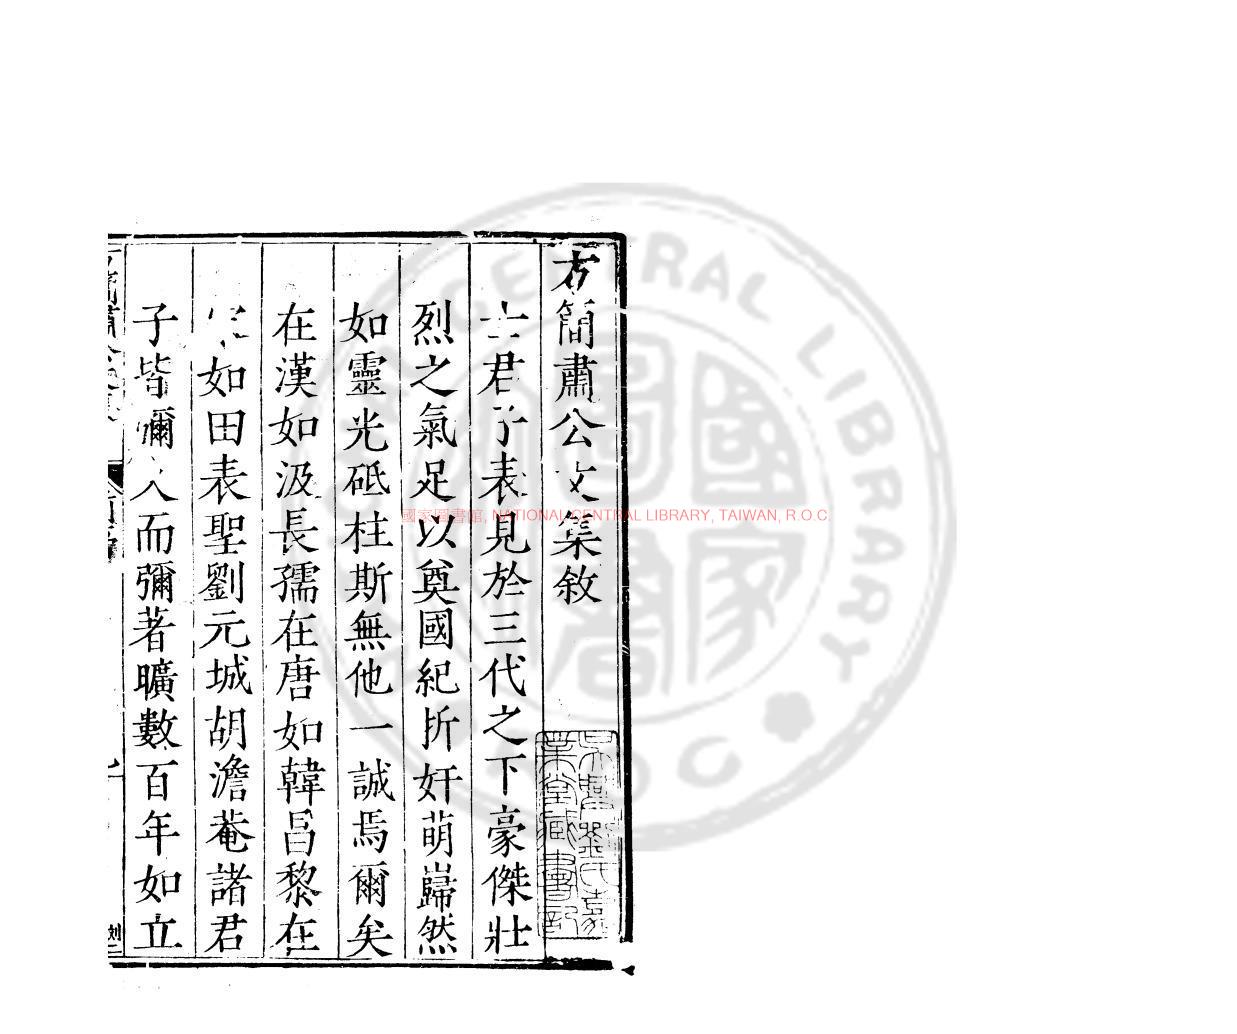 方簡肅公文集敘
士君子表見於三代之下豪傑壯
烈之氣足以奠國紀折奸萌巋然
如靈光砥柱斯無他一誠焉爾矣
在漢如汲長孺在唐如韓昌黎在
宋如田表聖劉元城胡澹菴諸君
子皆彌久而彌著曠數百年如立
國家圖書館, NATIONAL CENTRAL LIBRARY, TAIWAN, R.O.C.
CENTRAL LIBRARY
R.O.C